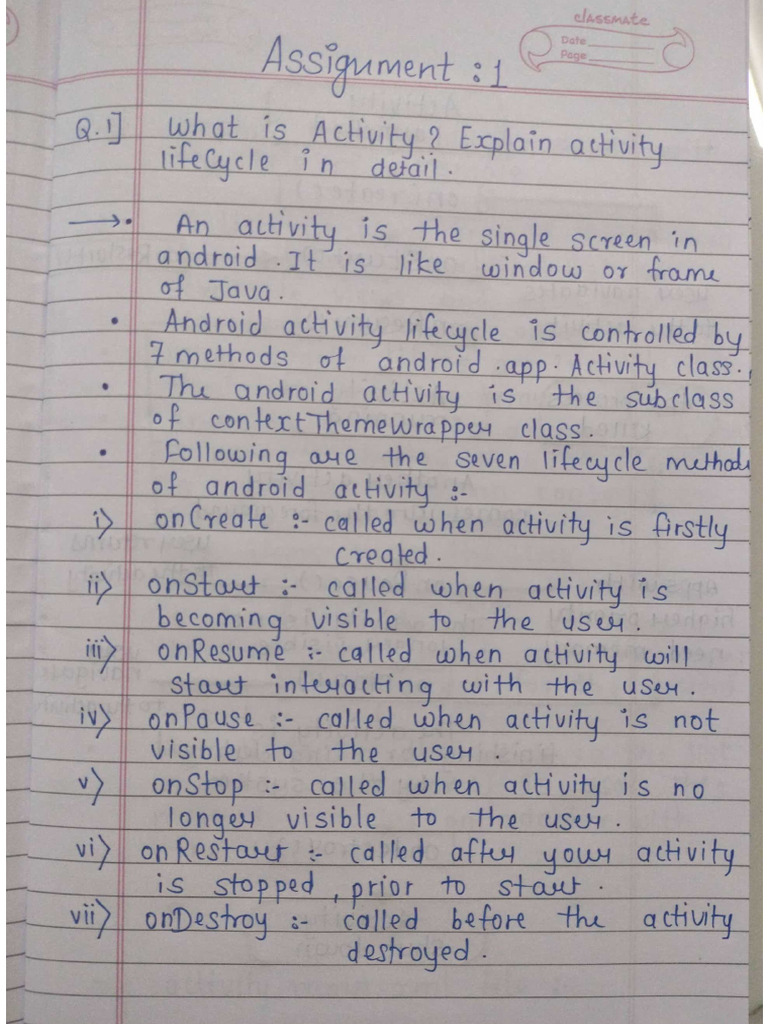 classmate
Date
Page
Assignment : 1
Q.1] What is Activity? Explain activity
lifeCycle in detail.
→• An activity is the single screen in
android. It is like window or frame
of Java.
• Android activity lifecycle is controlled by
7 methods of android.app.Activity class.
• The android activity is the subclass
of contextThemeWrapper class.
• Following are the seven lifecycle methods
of android activity :-
i) onCreate :- called when activity is firstly
created.
ii) onStart :- called when activity is
becoming visible to the user.
iii) onResume :- called when activity will
start interacting with the user.
iv) onPause :- called when activity is not
visible to the user.
v) onStop :- called when activity is no
longer visible to the user.
vi) onRestart :- called after your activity
is stopped, prior to start.
vii) onDestroy :- called before the activity
destroyed.